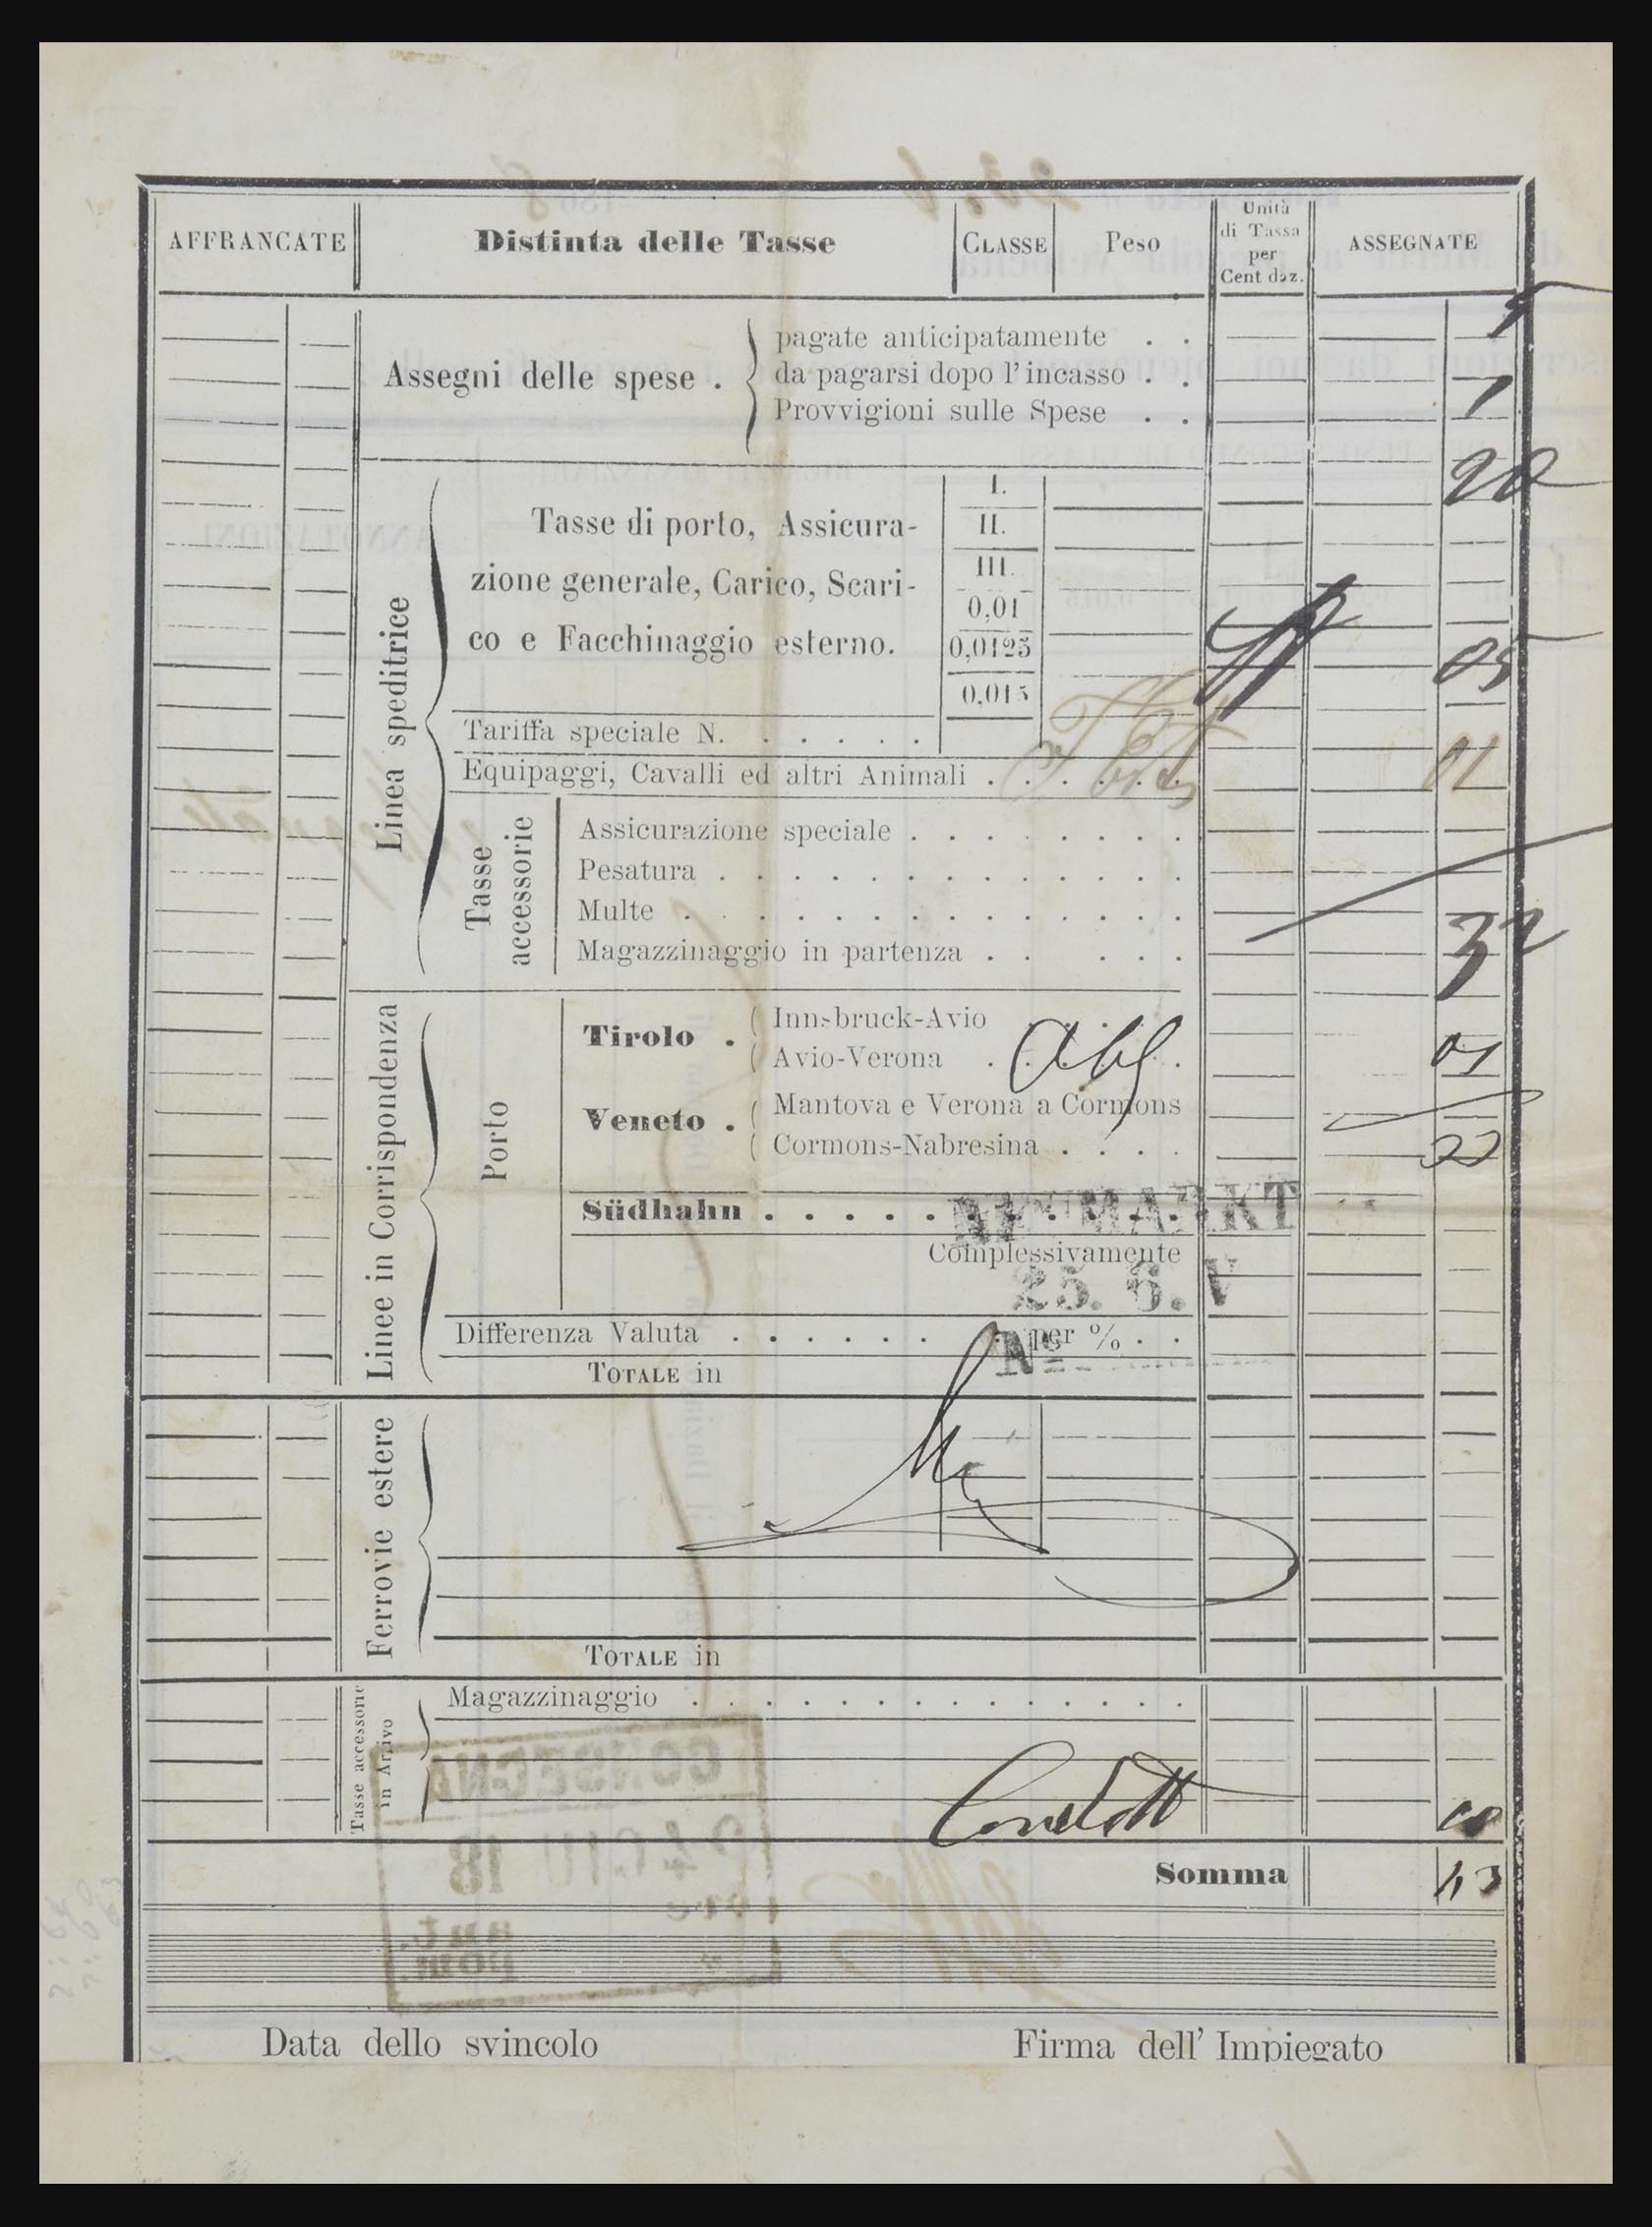 AFFRANCATE
Distinta delle Tasse
CLASSE
Peso
Unità
di Tassa
per
Cent daz.
ASSEGNATE
Assegni delle spese .
pagate anticipatamente . .
da pagarsi dopo l'incasso . .
Provvigioni sulle Spese . .
Linea speditrice
Tasse di porto, Assicura-
zione generale, Carico, Scari-
co e Facchinaggio esterno.
I.
II.
III.
0,01
0,0125
0,015
20
05
01
Tariffa speciale N. . . . . .
Equipaggi, Cavalli ed altri Animali . . . . . .
Tasse
accessorie
Assicurazione speciale . . . . . . . .
Pesatura . . . . . . . . . . . . .
Multe . . . . . . . . . . . . . .
Magazzinaggio in partenza . . . . .
32
Linee in Corrispondenza
Porto
Tirolo .
Innsbruck-Avio
Avio-Verona . . . . . .
01
Veneto .
Mantova e Verona a Cormons
Cormons-Nabresina . . . .
Südhahn . . . . . . . . . . . .
NEUMARKT
Complessivamente
25. 6. V
Differenza Valuta . . . . . . . . per % . .
No
TOTALE in
Ferrovie estere
TOTALE in
Tasse accessorie
in Arrivo
Magazzinaggio . . . . . . . . . . . . . .
CONSEGNA
Somma
13
Data dello svincolo
Firma dell' Impiegato